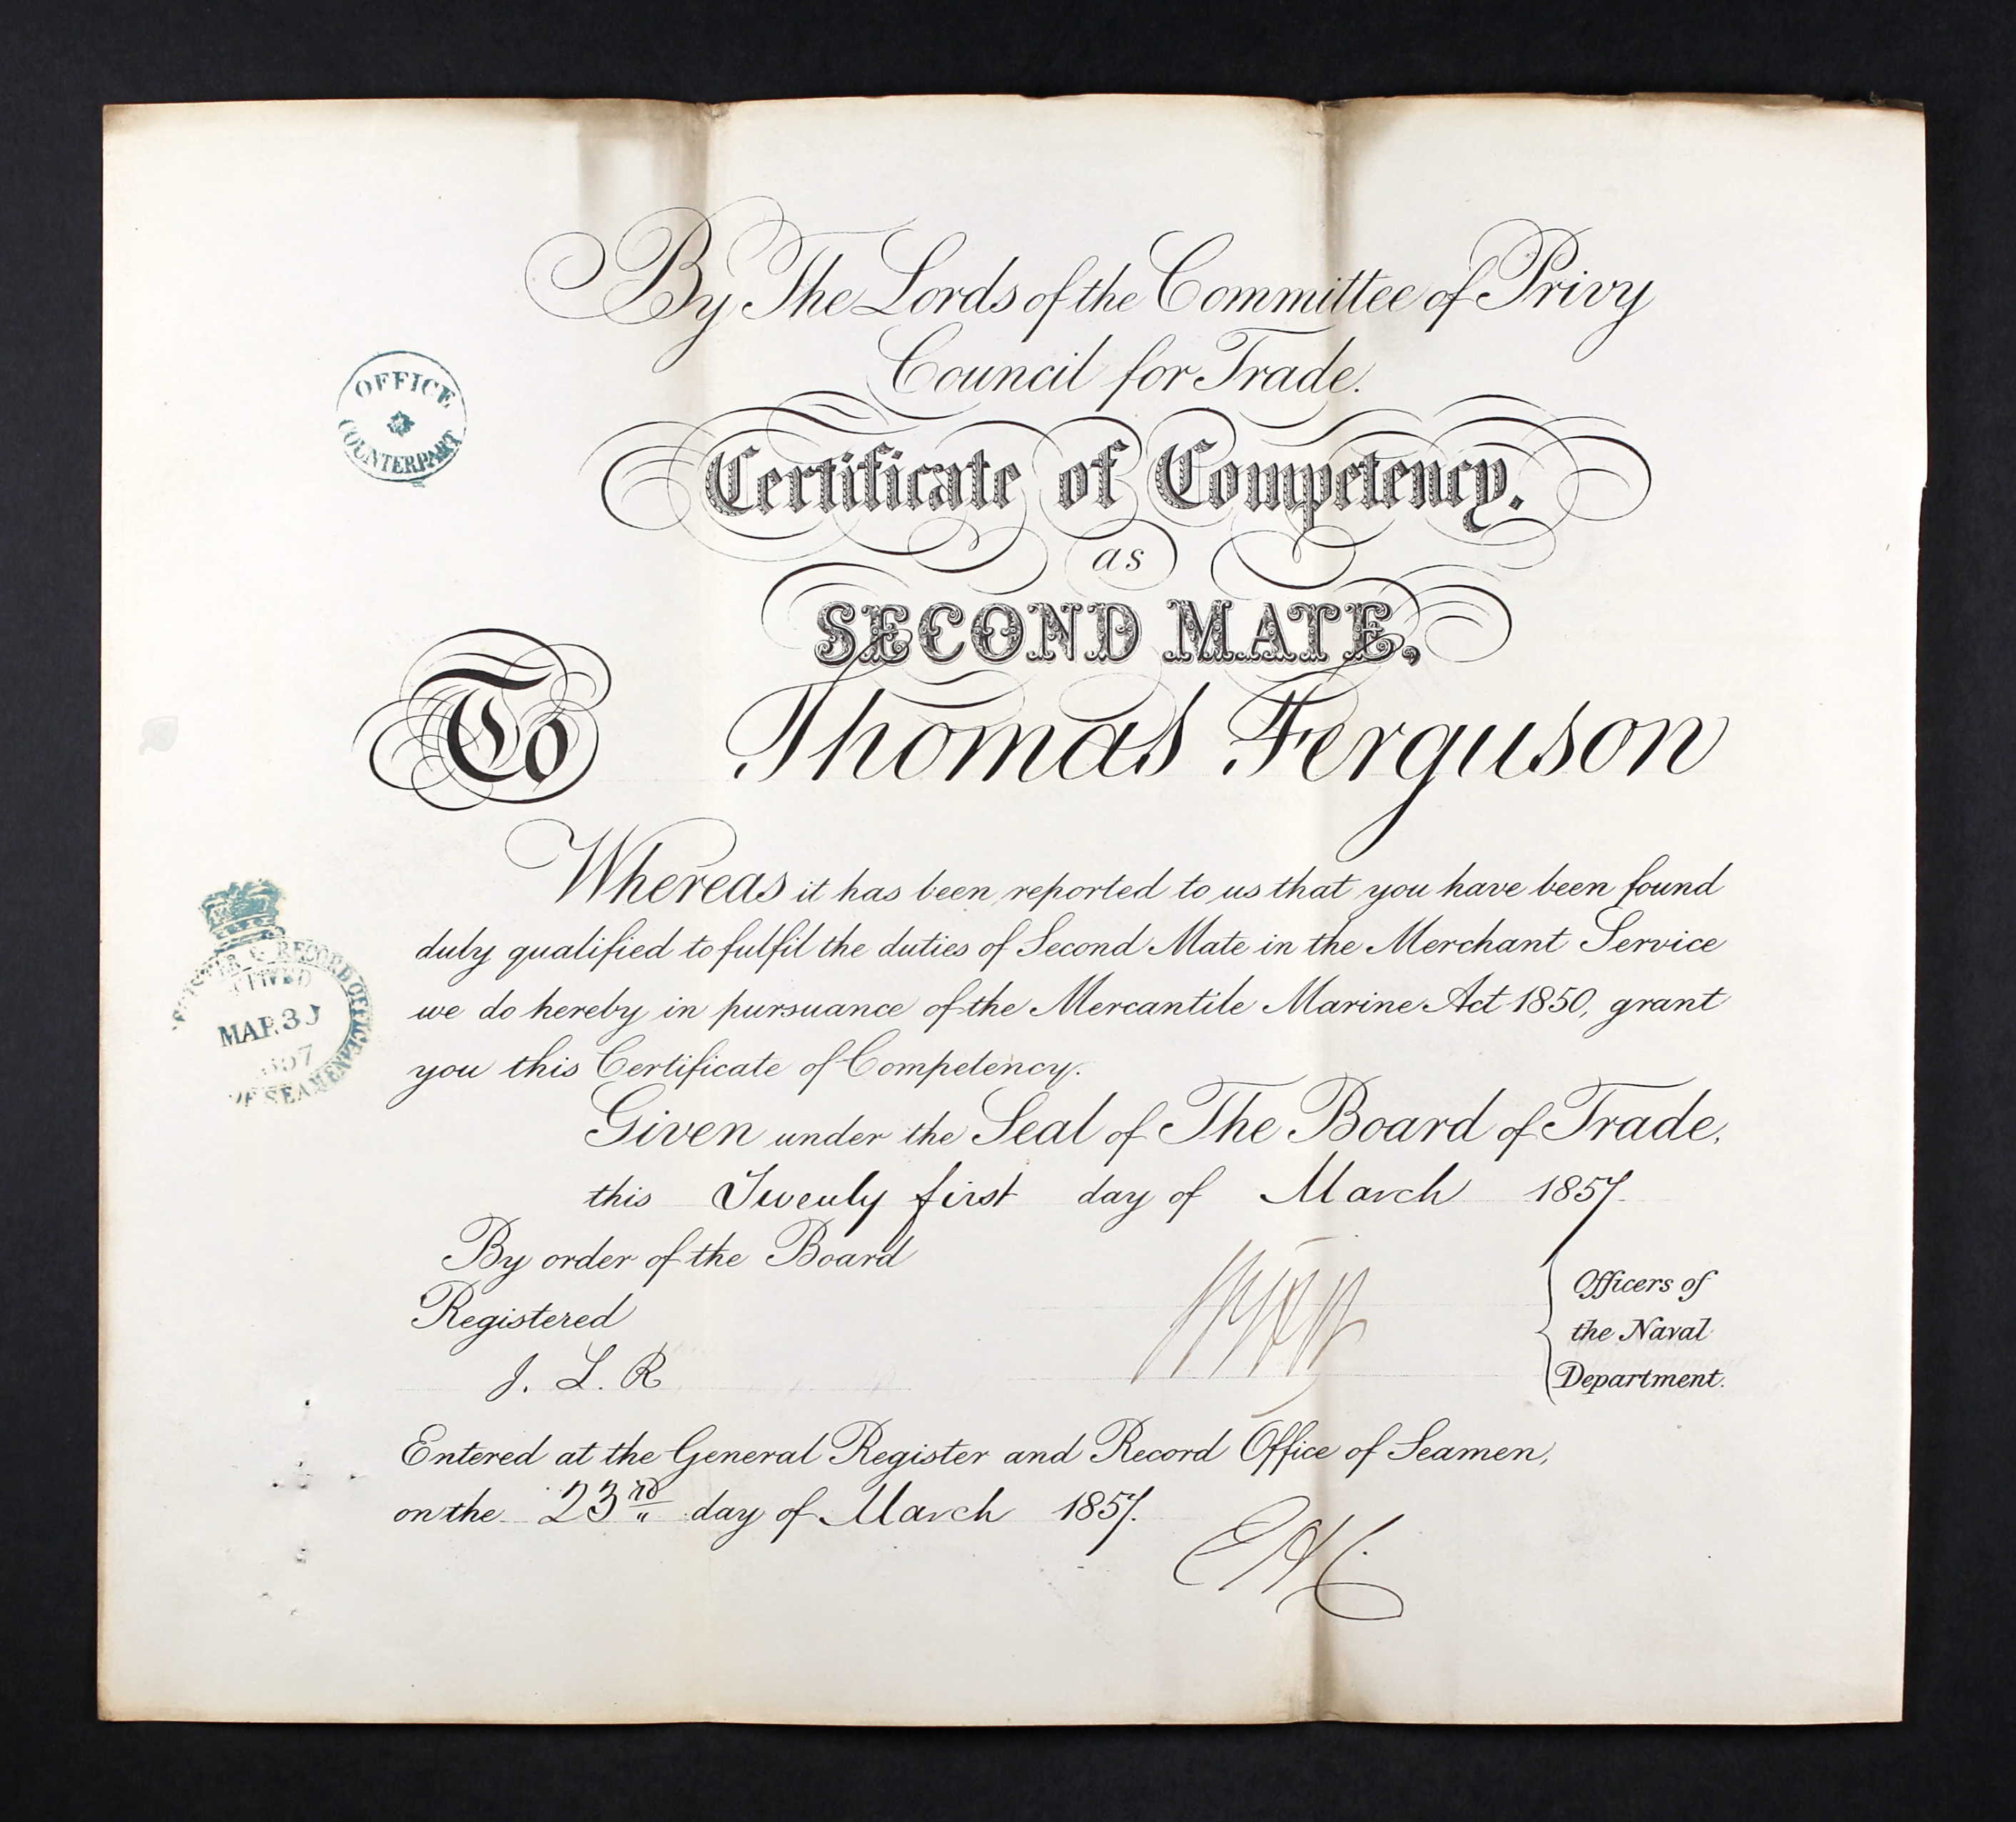 By The Lords of the Committee of Privy
Council for Trade.
OFFICE
COUNTERPART
Certificate of Competency.
as
SECOND MATE,
To Thomas Ferguson
Whereas it has been reported to us that you have been found
duly qualified to fulfil the duties of Second Mate in the Merchant Service
we do hereby in pursuance of the Mercantile Marine Act 1850, grant
you this Certificate of Competency.
RECORD OFFICE
MAR
OF SEAMEN
Given under the Seal of The Board of Trade,
this Twenty first day of March 1857.
By order of the Board
Registered
J. L. R
Officers of
the Naval
Department.
Entered at the General Register and Record Office of Seamen,
on the 23rd day of March 1857.